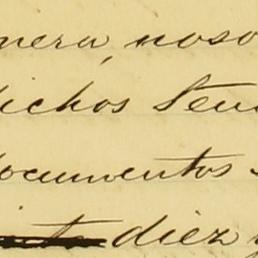 nera, noso
dichos Seno
documentos s
diez y